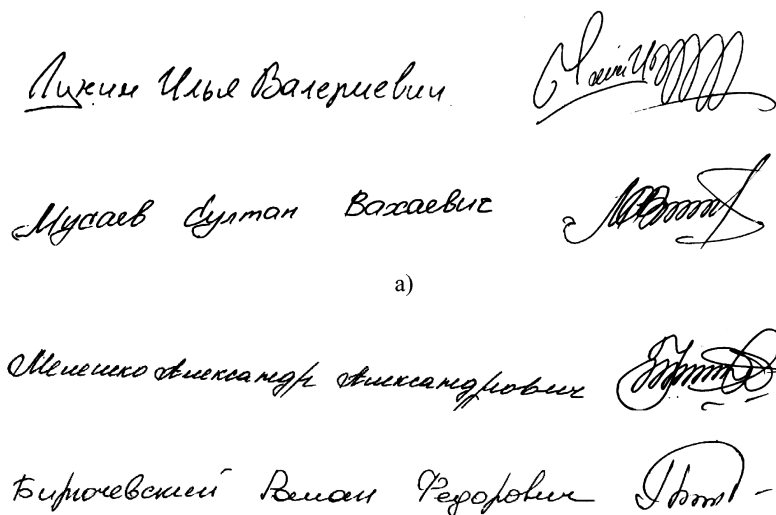 Лихин Илья Валериевич
Мусаев Султан Вахаевич
а)
Мелешко Александр Александрович
Бирючевский Роман Федорович